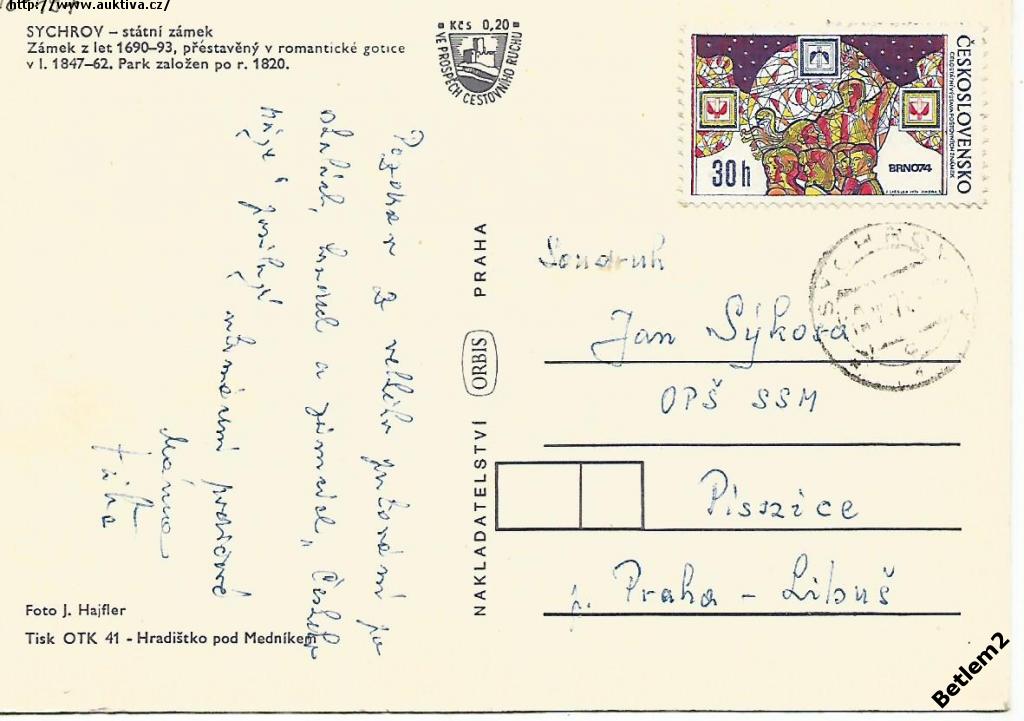 http://www.auktiva.cz/
SYCHROV – státní zámek
Zámek z let 1690–93, přéstavěný v romantické gotice
v l. 1847–62. Park založen po r. 1820.
Kčs 0,20
VE PROSPĚCH CESTOVNÍHO RUCHU
ČESKOSLOVENSKO
CELOSTÁTNÍ VÝSTAVA POŠTOVNÍCH ZNÁMEK
BRNO74
30 h
SYCHROV
Pozdrav z velkého putování po
hradech a zámcích „Českého
ráje" posílají
Máma
táta
NAKLADATELSTVÍ ORBIS PRAHA
Soudruh
Jan Sýkora
OPŠ SSM
Písnice
p. Praha – Libuš
Foto J. Hajfler
Tisk OTK 41 - Hradištko pod Medníkem
Betlem2